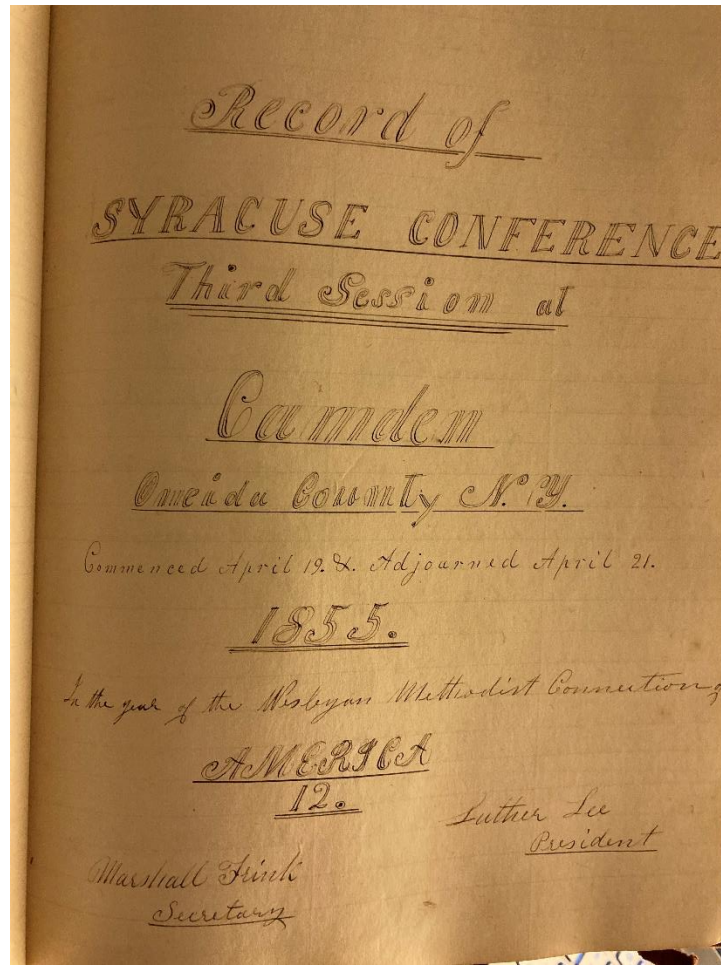 Record of
SYRACUSE CONFERENCE
Third Session at
Camden
Oneida County N.Y.
Commenced April 19. &. Adjourned April 21.
1855.
In the year of the Wesleyan Methodist Connection of
AMERICA
12.
Luther Lee
President
Marshall Frink
Secretary